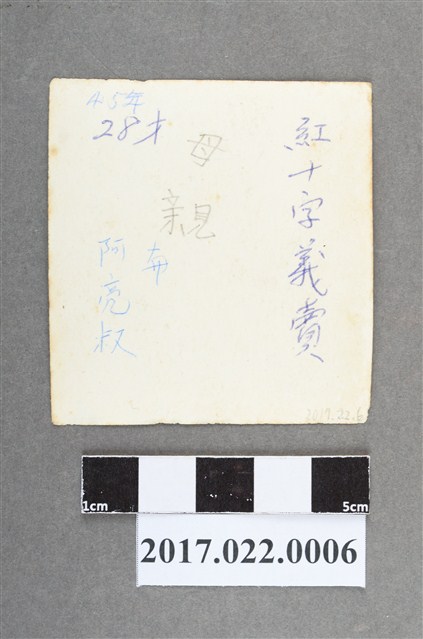 紅十字義賣
母親
45年
28才
阿亮叔
2017.22.6
1cm
5cm
2017.022.0006